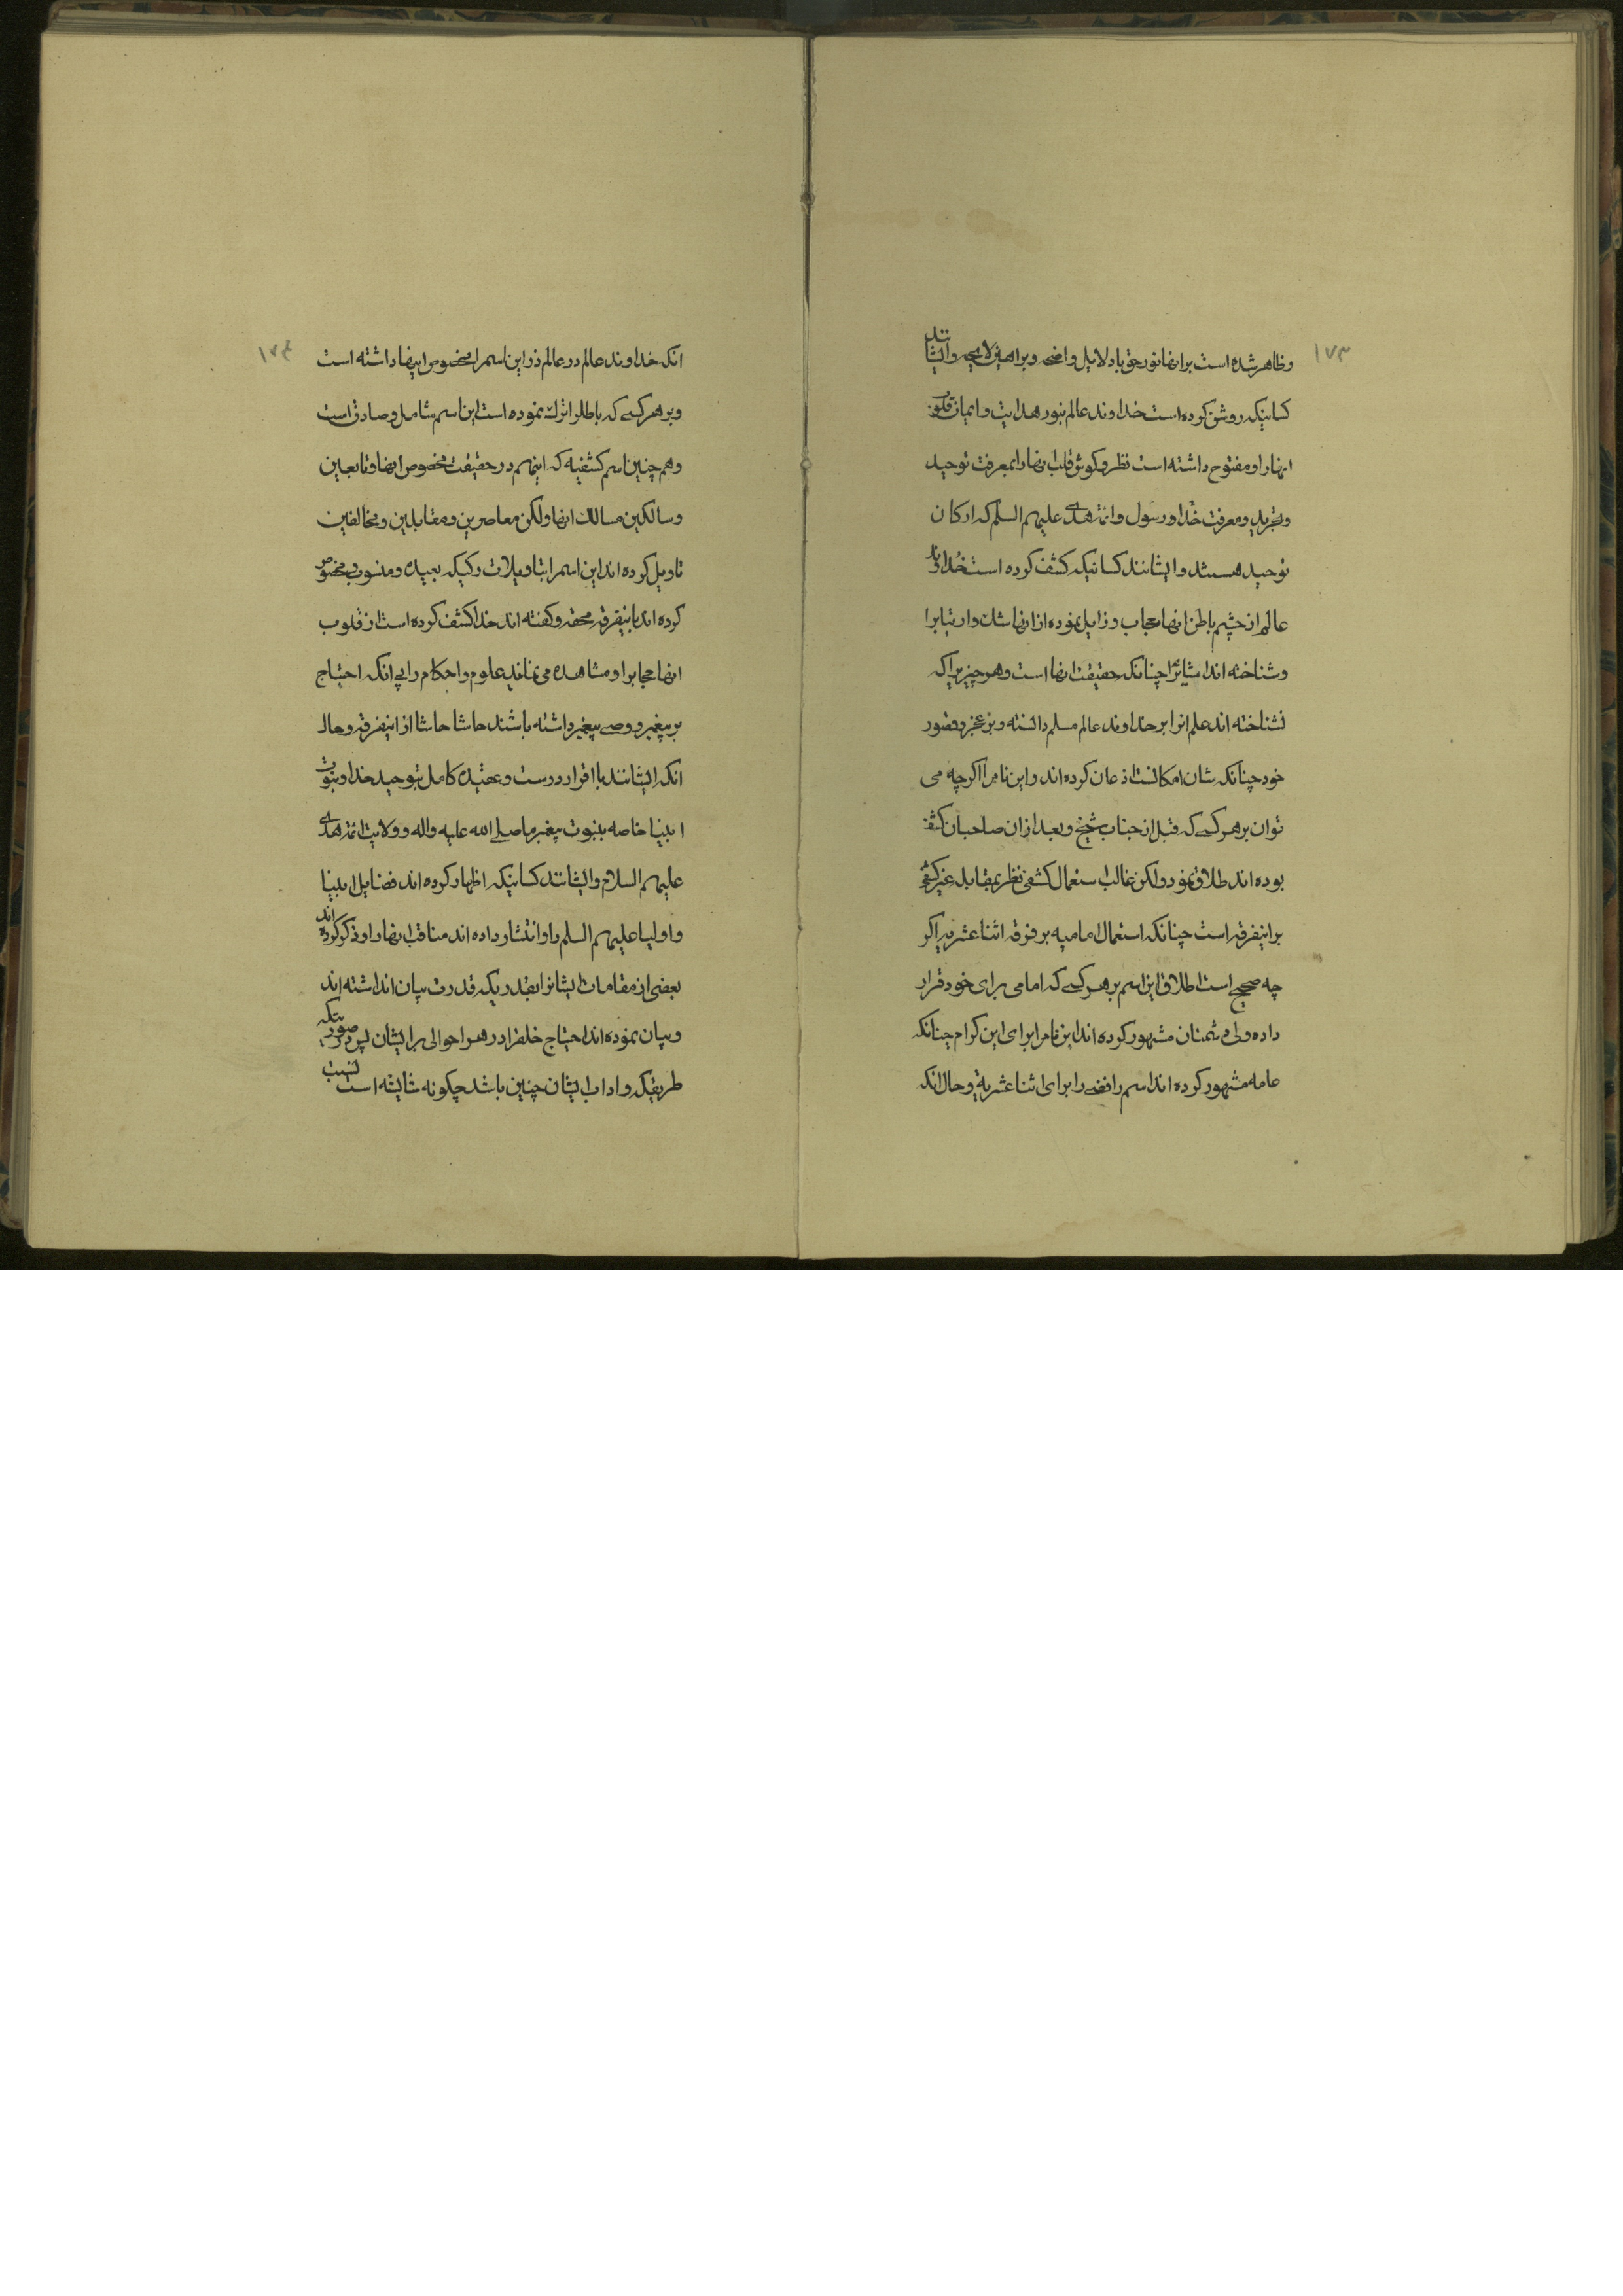 ١٧٣
وظاهر شده است برانها نور حق بادلایل واضحه وبراهین لایحه وایشانند
کسانیکه روشن کرده است خداوند عالم بنور هدایت وایمان قلوب
انهارا ومفتوح داشته است نظر وکوش قلب انهارا بمعرفت توحید
وتجرید ومعرفت خدا ورسول وائمه هدی علیهم السلم که ارکان
توحید هستند وایشانند کسانیکه کشف کرده است خداوند
عالم از چشم باطن انها حجاب وزایل نموده از انها شک وارتیابرا
وشناخته اند اشیائرا چنانکه حقیقت انها است وهر چیزیرا که
نشناخته اند علم انرا بر خداوند عالم مسلم دانسته وبر عجز وقصور
خود چنانکه شان امکانست اذعان کرده اند واین نامرا اکرچه می
توان بر هر کسی که قبل از جناب شیخ وبعد ازان صاحبان کشف
بوده اند طلاق نمود ولکن غالب استعمال کشفی نظر بمقابله غیر کشفی
براینفرقه است چنانکه استعمال امامیه بر فرقه اثنا عشریه اکر
چه صحیح است اطلاق این اسم بر هر کسی که امامی برای خود قرار
داده ولی دشمنان مشهور کرده اند این نامرا برای این کرام چنانکه
عامه مشهور کرده اند اسم رافضی را برای اثنا عشریة وحال انکه
١٧٤
انکه خداوند عالم در عالم ذر این اسمرا مخصوص اینها داشته است
وبر هر کسی که باطلرا ترک نموده است این اسم شامل وصادق است
وهم چنین اسم کشفیه که اینهم در حقیقت مخصوص انها وتابعین
وسالکین مسالک انها ولکن معاصرین ومقابلین ومخالفین
تاویل کرده اند این اسمرا بتاویلات رکیکه بعیده ومنسوب ومخصوص
کرده اند باینفرقه محقه وکفته اند خدا کشف کرده است از قلوب
انها حجابرا ومشاهده می نمایند علوم واحکام را بی انکه احتیاج
بر پیغمبر ووصی پیغمبر داشته باشند حاشا حاشا از اینفرقه وحال
انکه ایشانند با اقرار درست وعقیده کامل بتوحید خدا وبنوت
انبیا خاصه بنبوت پیغمبر ما صلی الله علیه واله وولایت ائمه هدی
علیهم السلام وایشانند کسانیکه اظهار کرده اند فضایل انبیا
واولیا علیهم السلم را وانتشار داده اند مناقب انهارا وذکر کرده اند
بعضی از مقامات ایشانرا بقدریکه قدرت بیان انداشته اند
وبیان نموده اند احتیاج خلقرا در هر احوالی بر ایشان پس در صورتیکه
طریقیکه واداب ایشان چنین باشد چکونه شایسته است نسبت